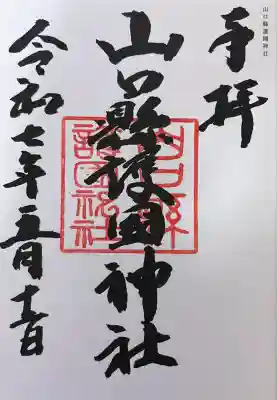 山口縣護國神社
奉拝
山口縣護國神社
山口縣
護國神社
令和七年五月